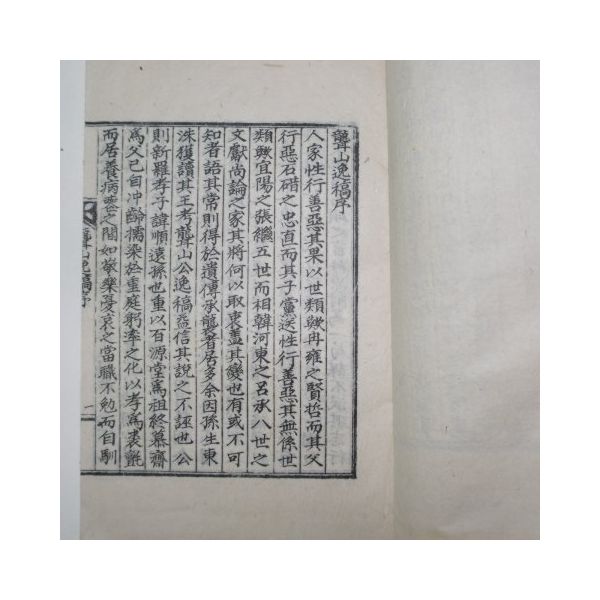 聾山逸稿序
人家性行善惡其果以世類歟冉雍之賢哲而其父
行惡石碏之忠直而其子黨逆性行善惡其無係世
類歟宜陽之張繼五世而相韓河東之呂承八世之
文獻尚論之家其將何以取衷盖其變也有或不可
知者語其常則得於遺傳承襲者居多余因孫生東
洙獲讀其王考聾山公逸稿益信其說之不誣也公
則新羅孝子諱順遠孫也重以百源堂爲祖終慕齋
爲父已自冲齡擩染於重庭躬率之化以孝爲裘氈
而居養病喪之間如敬樂憂哀之當職不勉而自馴
聾山逸稿序
一